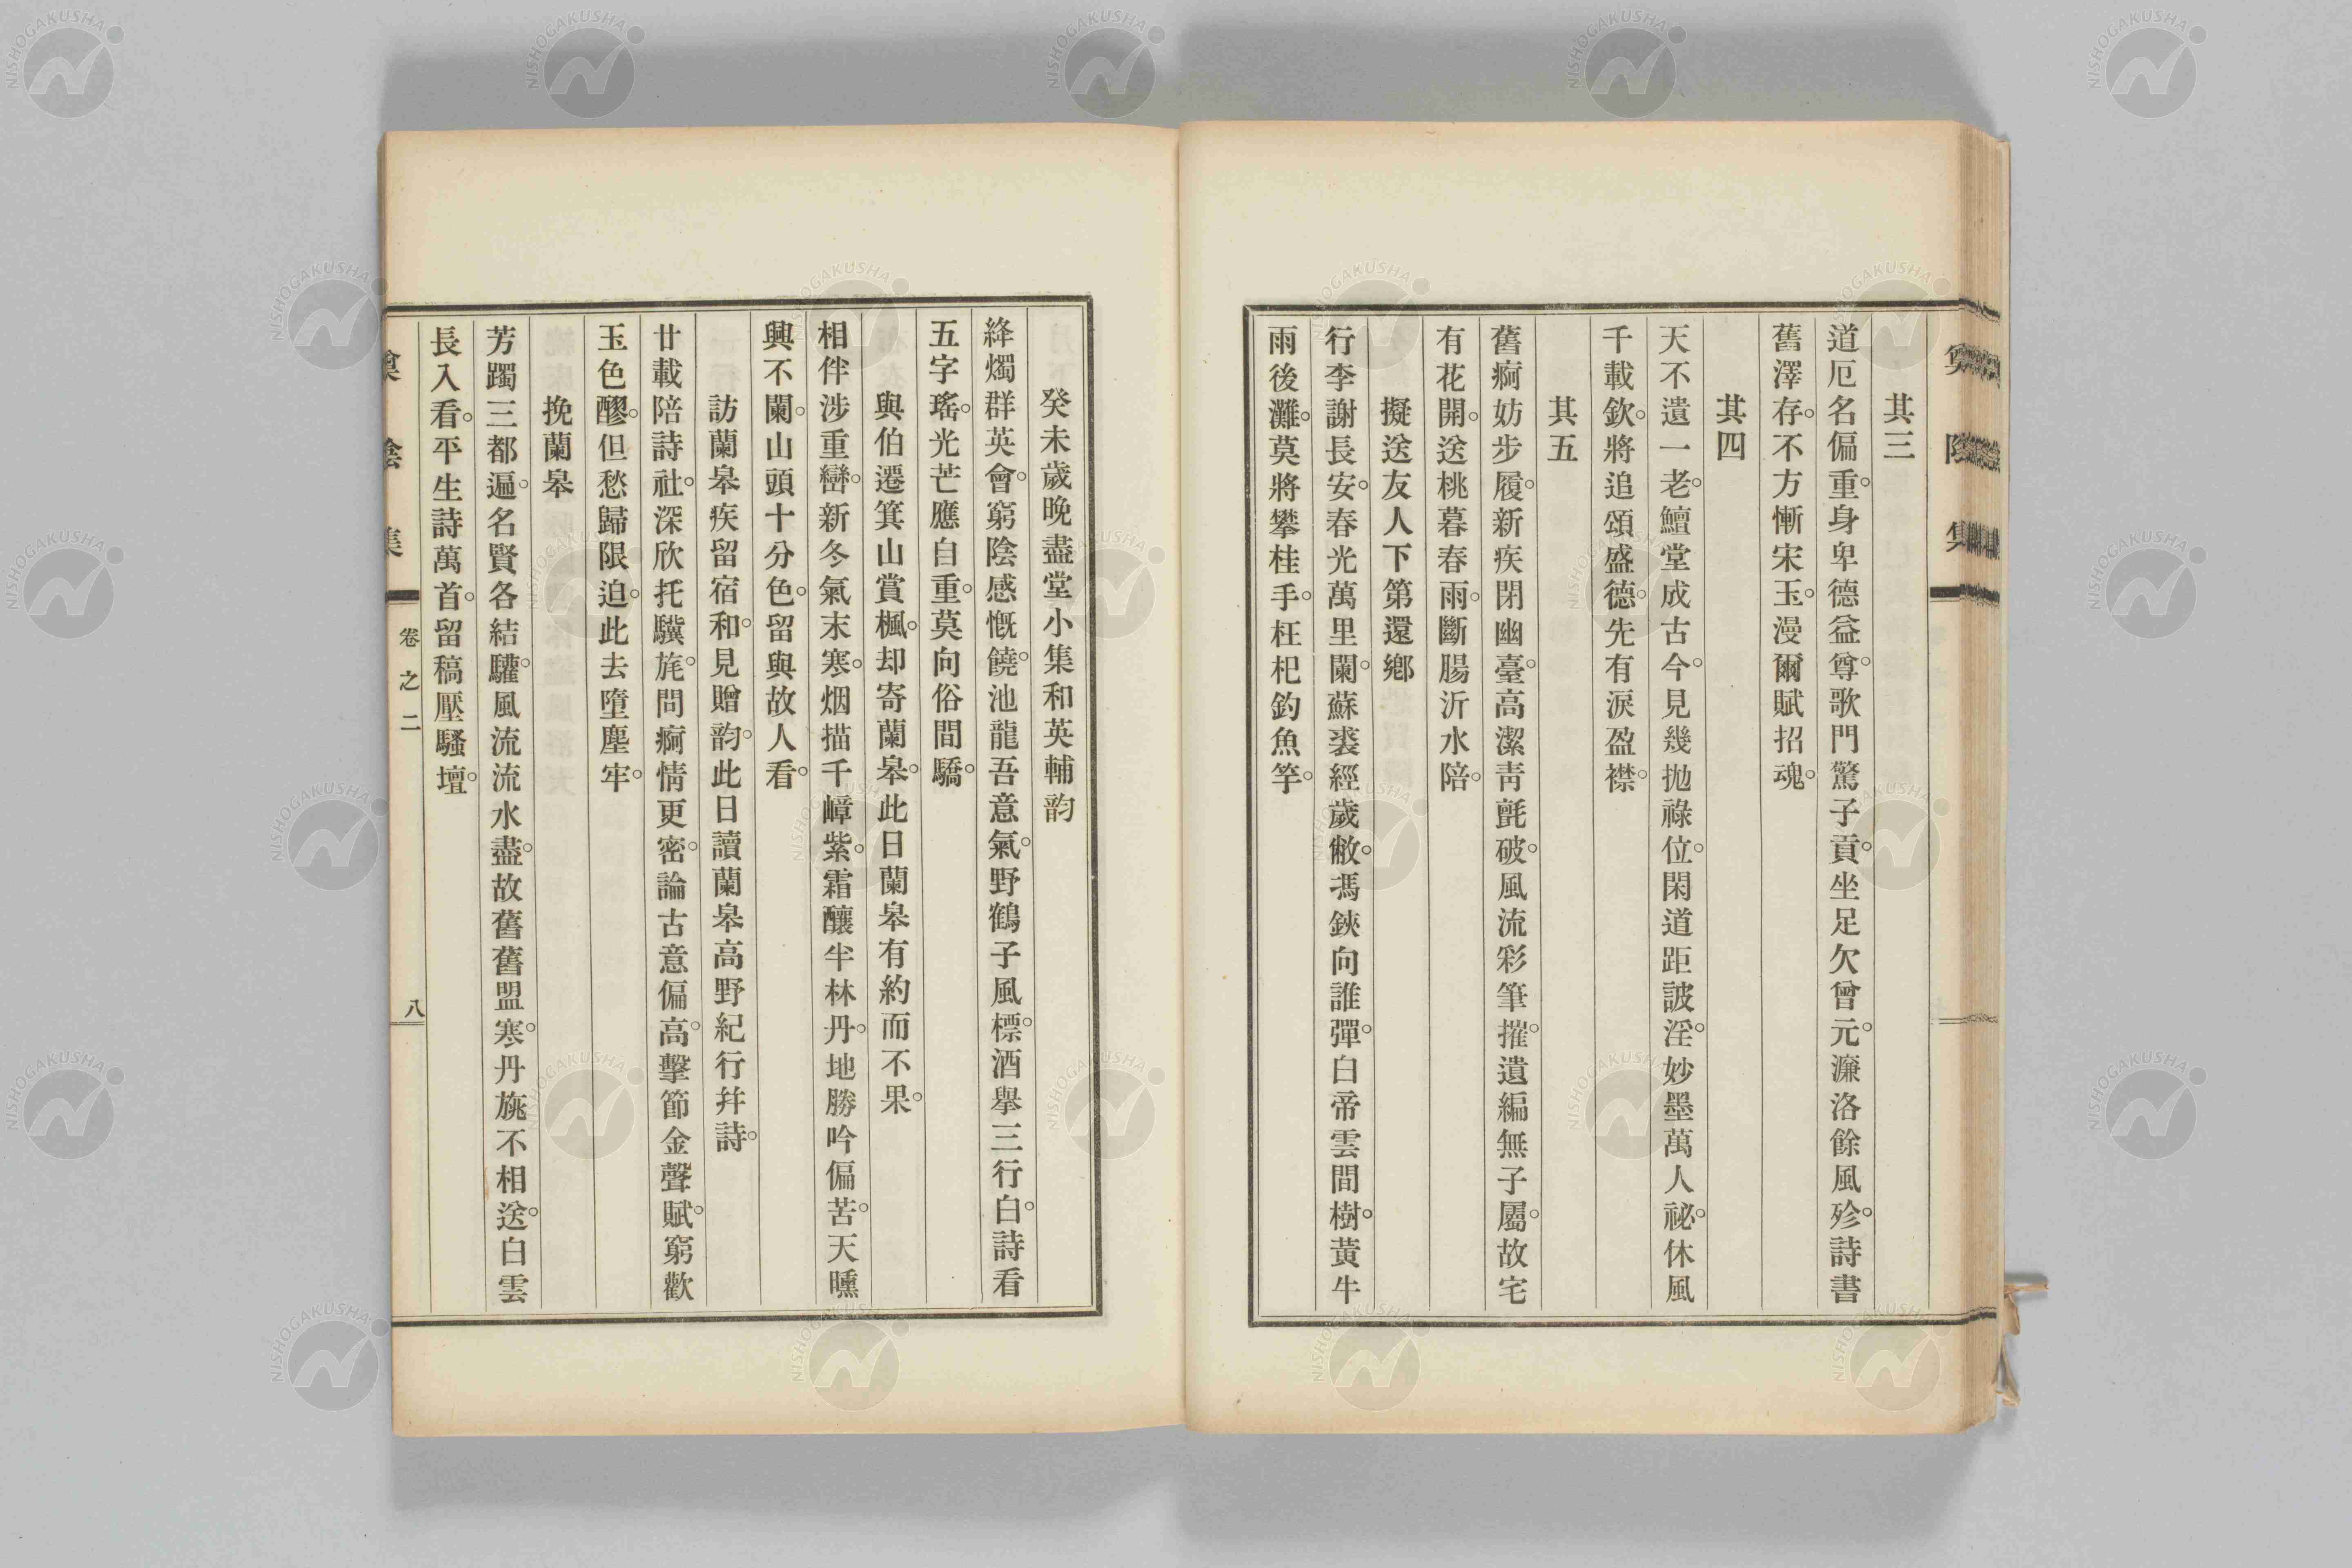 其三
道厄名偏重。身卑德益尊。歌門驚子貢。坐足欠曾元。濂洛餘風殄。詩書
舊澤存。不方慚宋玉。漫爾賦招魂。
其四
天不遺一老。鱣堂成古今。見幾拋祿位。閑道距詖淫。妙墨萬人祕。休風
千載欽。將追頌盛德。先有淚盈襟。
其五
舊痾妨步履。新疾閉幽臺。高潔靑氈破。風流彩筆摧。遺編無子屬。故宅
有花開。送桃暮春雨。斷腸沂水陪。
擬送友人下第還鄕
行李謝長安。春光萬里闌。蘇裘經歲敝。馮鋏向誰彈。白帝雲間樹。黃牛
雨後灘。莫將攀桂手。枉杞釣魚竿。
癸未歲晚盡堂小集和英輔韵
絳燭群英會。窮陰感慨饒。池龍吾意氣。野鶴子風標。酒擧三行白。詩看
五字瑤。光芒應自重。莫向俗間驕。
與伯遷箕山賞楓。却寄蘭皋。此日蘭皋有約而不果。
相伴涉重巒。新冬氣末寒。烟描千嶂紫。霜釀半林丹。地勝吟偏苦。天曛
興不闌。山頭十分色。留與故人看。
訪蘭皋疾留宿和。見贈韵。此日讀蘭皋高野紀行幷詩。
廿載陪詩社。深欣托驥旄。問痾情更密。論古意偏高。擊節金聲賦。窮歡
玉色醪。但愁歸限迫。此去墮塵牢。
挽蘭皋
芳躅三都遍。名賢各結驩。風流流水盡。故舊舊盟寒。丹旐不相送。白雲
長入看。平生詩萬首。留稿壓騷壇。
卷之二
八
NISHOGAKUSHA